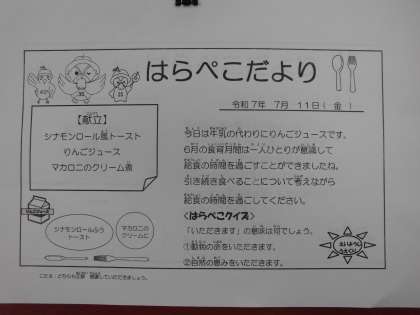 はらぺこだより
令和7年 7月 11日( 金 )
【献立】
シナモンロール風トースト
りんごジュース
マカロニのクリーム煮
今日は牛乳の代わりにりんごジュースです。
6月の食育月間は一人ひとりが意識して
給食の時間を過ごすことができましたね。
引き続き食べることについて考えながら
給食の時間を過ごしてください。
<はらぺこクイズ>
「いただきます」の意味は何でしょう。
①動物の命をいただきます。
②自然の恵みをいただきます。
シナモンロールふう
トースト
マカロニの
クリームに
こたえ:どちらも正解 感謝していただきましょう。